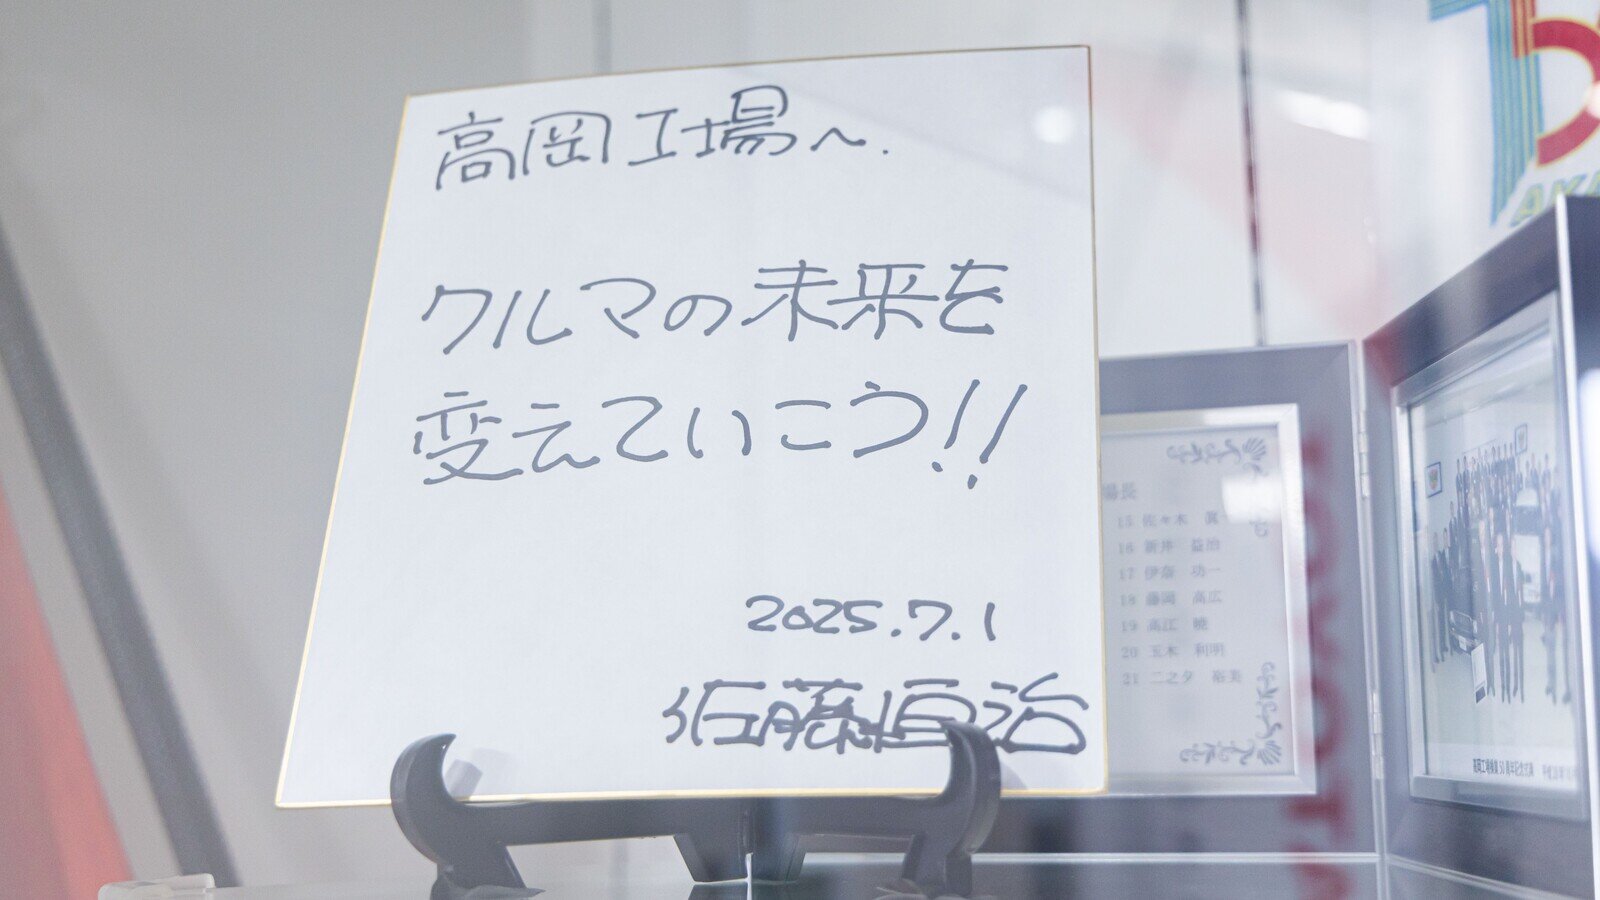 高岡工場へ.
クルマの未来を
変えていこう!!
2025.7.1
佐藤恒治
場長
15 佐々木 眞一
16 新井 益治
17 伊奈 功一
18 藤岡 高広
19 高江 暁
20 玉木 利明
21 二之夕 裕美